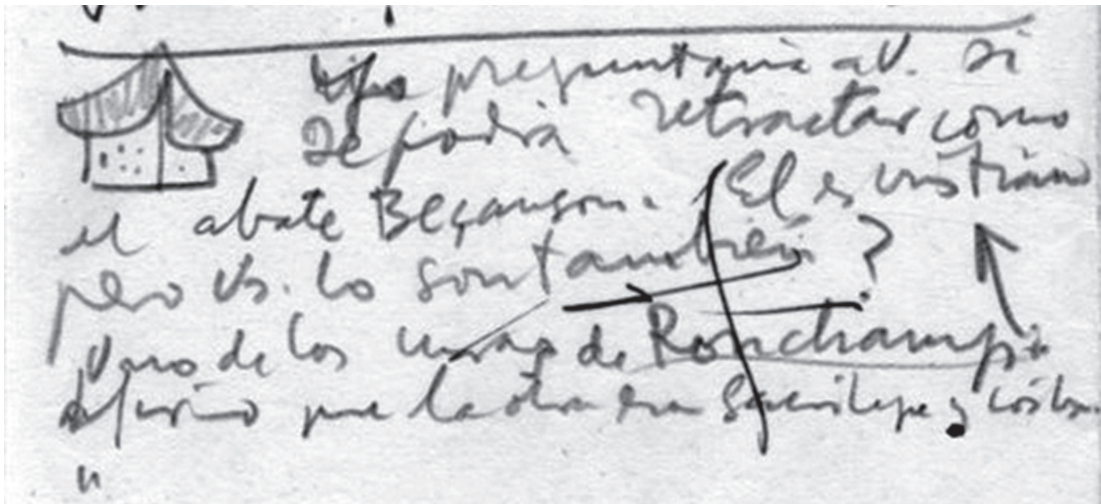 preguntaria a V. si
se podria retractar como
el abate Beçançon. ¿El es cristiano
pero Vs. lo son también?
Uno de los curas de Ronchamp
que la obra era sacrilega y